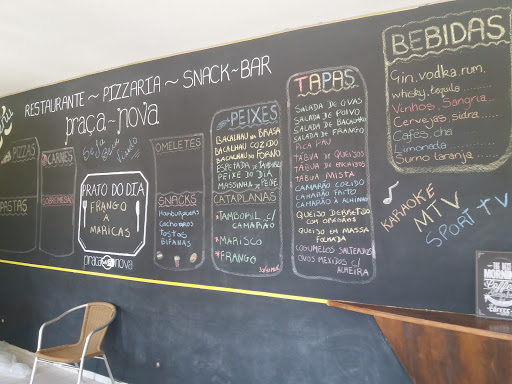 RESTAURANTE ~ PIZZARIA ~ SNACK-BAR
praça-nova
PIZZAS
PASTAS
CARNES
SOBREMESAS
Seja Bem Vindo
PRATO DO DIA
FRANGO
Á
MARICAS
praça nova
OMELETES
SNACKS
Hamburgueres
Cachorros
Tostas
Bifanas
PEIXES
BACALHAU NA BRASA
BACALHAU COZIDO
BACALHAU NO FORNO
ESPETADA DE TAMBORIL
PEIXE DO DIA
MASSINHA DE PEIXE
CATAPLANAS
*TAMBORIL C/
CAMARÃO
*MARISCO
*FRANGO
TAPAS
SALADA DE OVAS
SALADA DE POLVO
SALADA DE BACALHAU
SALADA DE FRANGO
PICA PAU
TÁBUA DE QUEIJOS
TÁBUA DE ENCHIDOS
TÁBUA MISTA
CAMARÃO COZIDO
CAMARÃO FRITO
CAMARÃO Á ALHINHO
QUEIJO DERRETIDO
COM OREGÃOS
QUEIJO EM MASSA
FOLHADA
COGUMELOS SALTEADOS
OVOS MEXIDOS C/
ALHEIRA
BEBIDAS
Gin, vodka, rum,
whisky, tequila
Vinhos, Sangria
Cervejas, sidra
Cafés, chá
Limonada
Sumo laranja
KARAOKE
MTV
SPORT TV